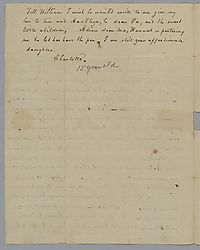 Tell William I wish he would write to me give my
love to him and Aunt Lucy, to dear Pa, and the sweet
little children, Adieu dear Ma, Hannah is
me to let her have the pen, I am still your affectionate
daughter
Charlotte.
15 years old